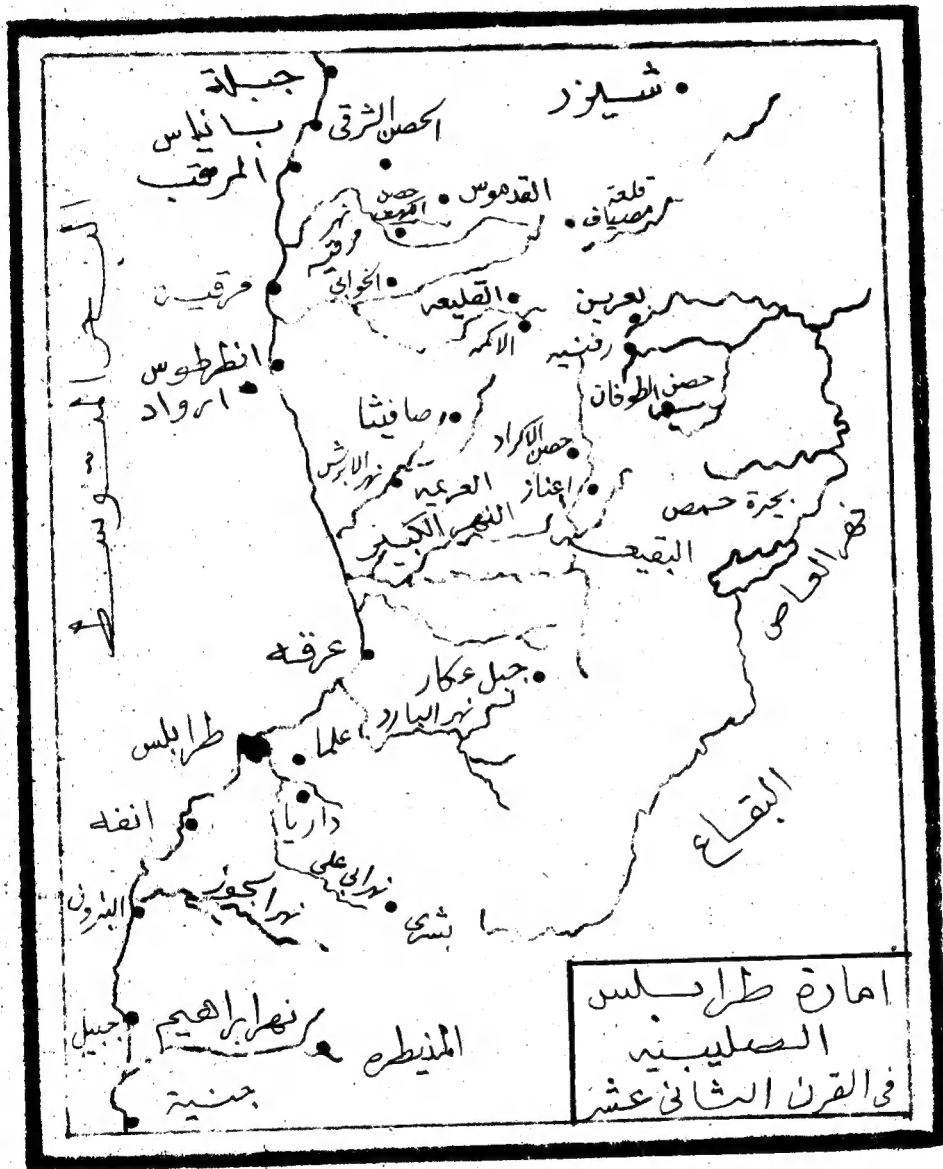 جبلة
شيزر
بانياس
الحصن الشرقى
المرقب
القدموس
حصن
الكهف
قلعة
مصياف
نهر
مرقيه
مرقية
الخوابي
القليعه
بعرين
الاكمه
رفنيه
انطرطوس
ارواد
حصن الطوفان
صافيثا
حصن الاكراد
نهر الابرش
العريمه
اعناز
النهر الكبير
بحرة حمص
البقيعه
نهر العاصى
البحر المتوسط
عرقه
جبل عكار
نهر البارد
طرابلس
علما
انفه
داريا
البقاع
نهر ابى على
البترون
نهر الجوز
بشرى
جبيل
نهر ابراهيم
المنيطره
جنية
امارة طرابلس
الصليبيه
فى القرن الثانى عشر